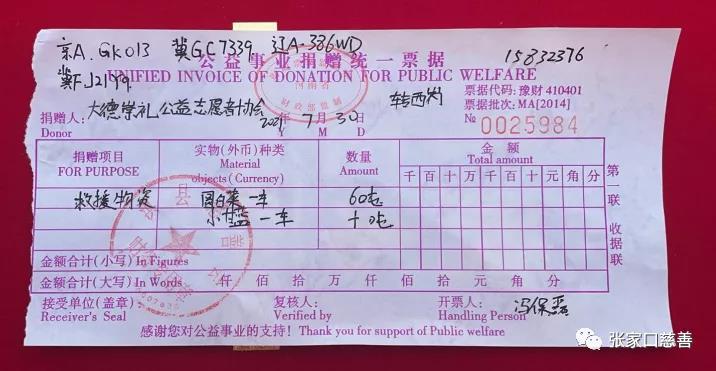 京A.GK013 冀GC7339 辽A-386WD 15832376
冀FJ2199
公益事业捐赠统一票据
UNIFIED INVOICE OF DONATION FOR PUBLIC WELFARE
河南省
财政部监制
票据代码:豫财 410401
票据批次:MA[2014]
№ 0025984
捐赠人:大德崇礼公益志愿者协会 2021年 7月 30日
Donor Y M D
捐赠项目 实物(外币)种类 数量 金额
FOR PURPOSE Material objects (Currency) Amount Total amount
千 百 十 万 千 百 十 元 角 分
救援物资 圆白菜一车 60吨
一车 十吨
金额合计(小写) In Figures
金额合计(大写) In Words 仟 佰 拾 万 仟 佰 拾 元 角 分
第一联 收据联
接受单位(盖章) 复核人: 开票人:
Receiver's Seal Verified by Handling Person
感谢您对公益事业的支持! Thank you for support of Public welfare
张家口慈善